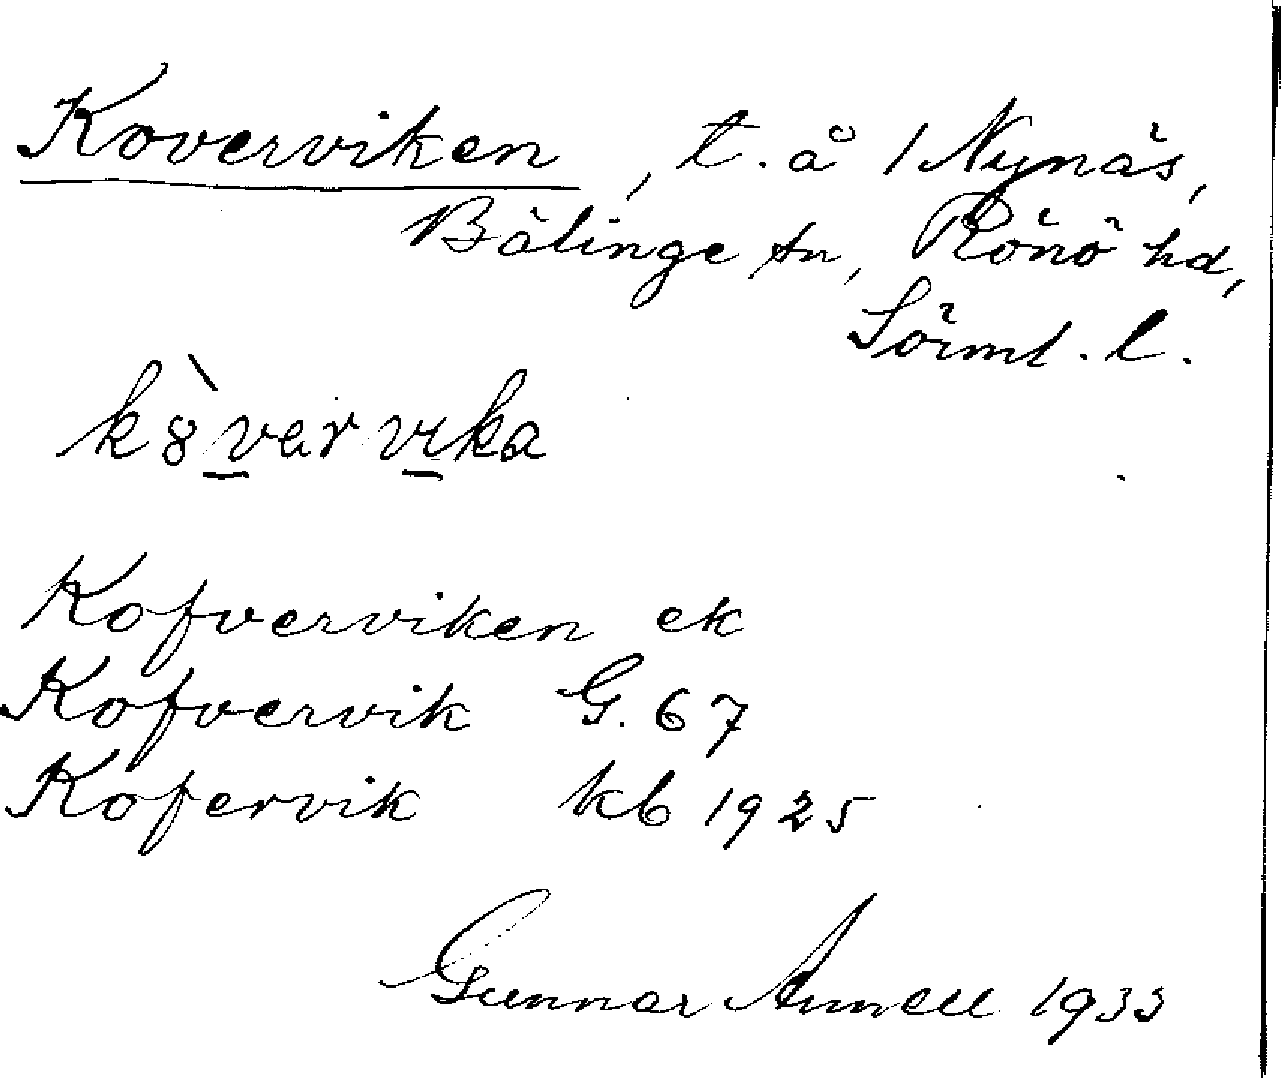 Koverviken, t. å 1 Nynäs,
Bälinge sn, Rönö hd,
Sörml. l.
k8̀var vıka
Kofverviken ek
Kofvervik G. 67
Kofervik kb 1925
Gunnar Annell 1933